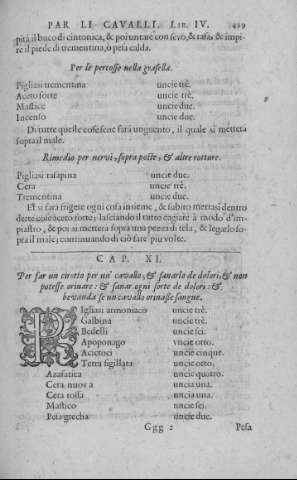 PAR LI CAVALLI. LIB. IV. 419
pirá il buco di cintonica, & poi untare con sevo, & rasa, & impi-
re il piede di trementina, ò pesa calda.
Per le percosse nella grassella.
Pigliasi trementina uncie trè.
Aceto forte uncie trè.
Mastice uncie due.
Incenso uncie due.
Di tutte queste cose sene farà unguento, il quale si metterà
sopra il male.
Rimedio per nervi, sopra poste, & altre rotture.
Pigliasi rasapina uncie due.
Cera uncie trè.
Trementina uncie due.
Et si farà frigere ogni cosa insieme, & subito mettasi dentro
dette cose aceto forte; lasciando il tutto cagiare à modo d'im-
piastro, & poi si metterà sopra una pezza di tela, & legarlo so-
pra il male; continuando di ciò fare più volte.
CAP. XI.
Per far un cirotto per un' cavallo, & sanarlo de dolori, & non
potesse orinare: & sanar ogni sorte de dolori: &
bevanda se un cavallo orinasse sangue.
PIgliasi armoniaco uncie trè.
Galbina uncie trè.
Bedelli uncie sei.
Apoponago uncie otto.
Acictoci uncie cinque.
Terra sigillata uncie otto.
Azafatica uncie quatro.
Cera nuova uncia una.
Cera rossa uncia una.
Mastico uncie sei.
Pesa grecha uncie due.
Ggg 2 Pesa